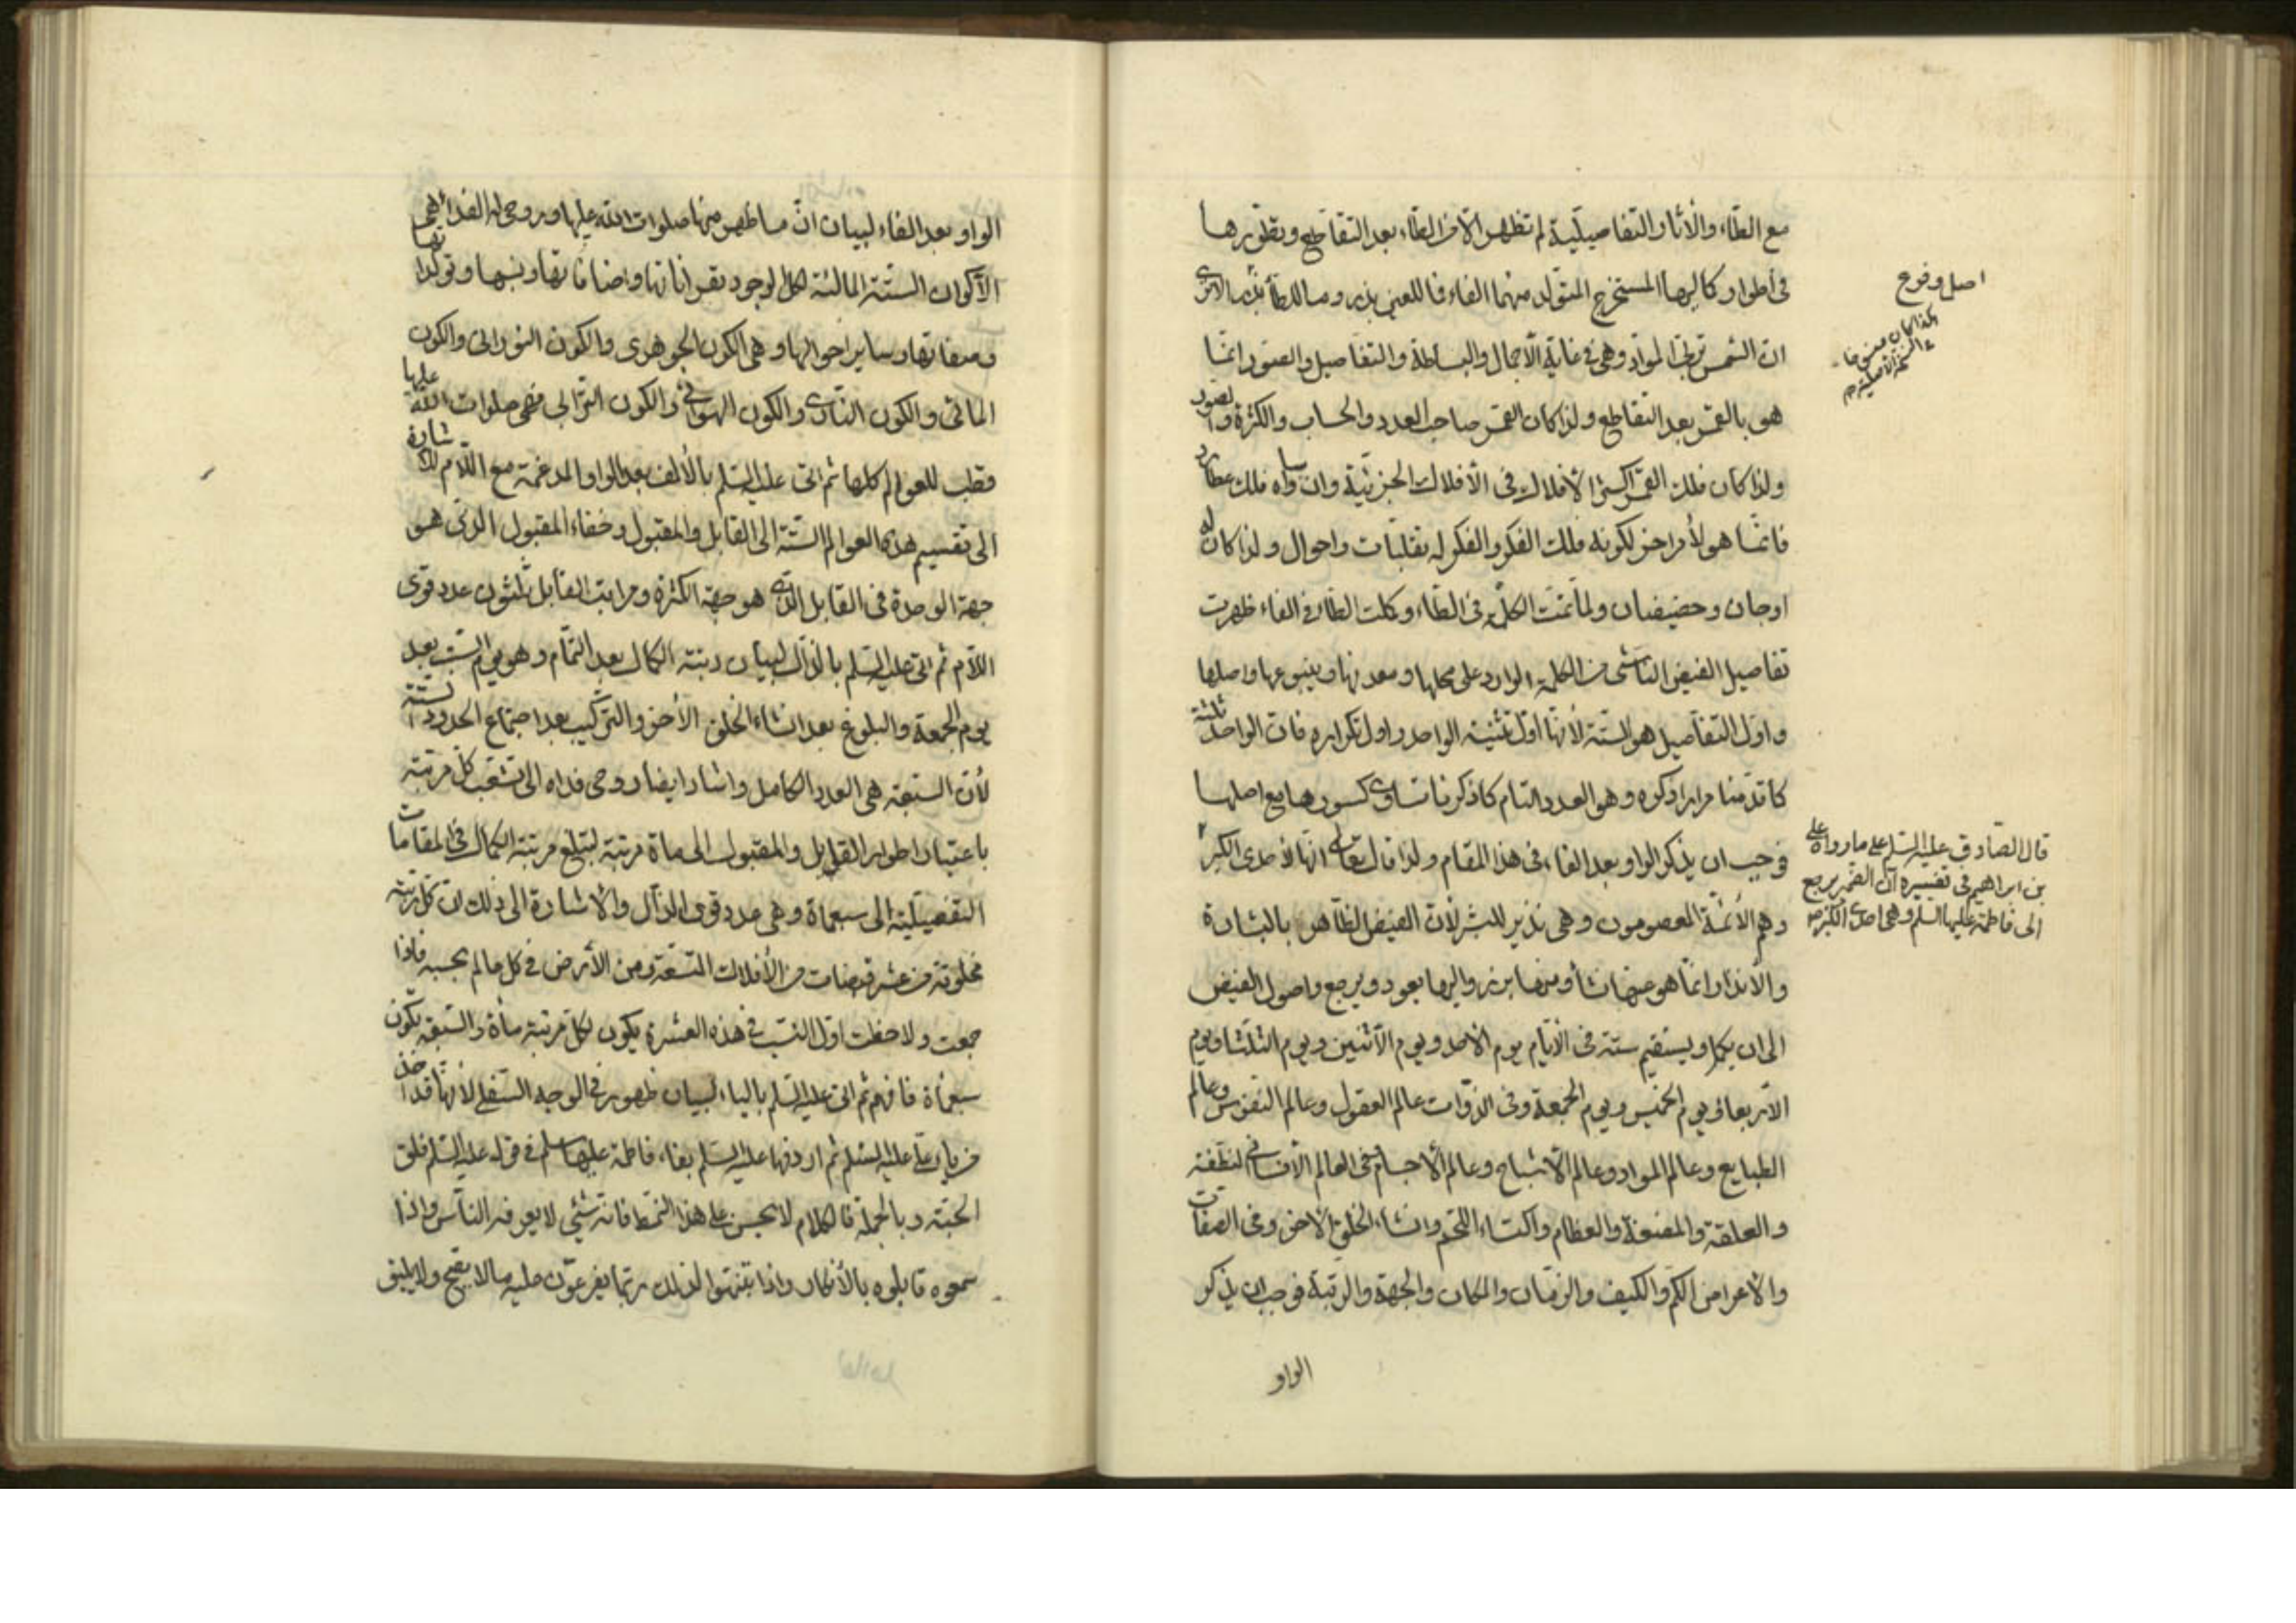 مع الطاء والأثار التفاصيلية لم تظهر الا في الطاء بعد التقاطع وتطويرها
فى أطوار كمالها المستخرج المتولد منهما الفاء فاللعين بذر وما للطاء بذر
ان الشمس تربى المواد وهى في غاية الأجمال والبساطة والتفاصيل والصور انما
هو بالقمر بعد التقاطع ولذا كان القمر صاحب العدد والحساب والكثرة والصور
ولذا كان فلك القمر اكثر الأفلاك فى الأفلاك الجزئية وان ساواه فلك عطارد
فانما هو لأمر اخر لكونه فلك الفكر والفكر له تقلبات واحوال ولذا كان له
اوجان وحضيضان ولما تمت الكلمة فى الطاء وكملت الطاء في الفاء ظهرت
تفاصيل الفيض الناشى من الكلمة الوارد على محلها ومعدنها وينبوعها واصلها
واول التفاصيل هو الستة لأنها اول تثنية الواحد واول تكراره فان الواحد ثلثة
كما قدمنا مرارا ذكره وهو العدد التام كما ذكرنا تساوى كسورها مع اصلها
فوجب ان يذكر الواو بعد الفاء فى هذا المقام ولذا قال تعالى انها لأحدى الكبر
وهم الأئمة المعصومون وهى نذير للبشر لأن الفيض الظاهر بالبشارة
والأنذار انما هو منها نشأ ومنها برز واليها يعود ويرجع واصول الفيض
الى ان يكمل ويستقيم ستة فى الأيام يوم الأحد ويوم الأثنين ويوم الثلثا ويوم
الأربعا ويوم الخميس ويوم الجمعة وفى الذوات عالم العقول وعالم النفوس وعالم
الطبايع وعالم المواد وعالم الأشباح وعالم الأجسام وفى العالم الأنسانى النطفة
والعلقة والمضغة والعظام واكتساء اللحم وانشاء الخلق الأخر وفى الصفات
والأعراض الكم والكيف والزمان والمكان والجهة والرتبة فوجب ان يذكر
الواو
اصل وفروع
هكذا كان
قال الصادق عليه السلم على ما رواه على
بن ابراهيم فى تفسيره ان الضمير يرجع
الى فاطمة عليها السلم وهى احدى الكبر
الواو بعد الفاء لبيان ان ما ظهر منها صلوات الله عليها وروحى لها الفداء هى
الأكوان الستة المالئة لكل الوجود بقراناتها واضافاتها ونسبها وتولداتها
وصفاتها وساير احوالها وهى الكون الجوهرى والكون النورانى والكون
المائى والكون النارى والكون الهوائى والكون الترابى فهى صلوات الله عليها
قطب للعوالم كلها ثم اتى عليه السلم بالألف بعد الواو المدغمة مع اللام للأشارة
الى تقسيم هذه العوالم الستة الى القابل والمقبول وخفاء المقبول الذى هو
جهة الوحدة فى القابل الذى هو جهة الكثرة ومراتب القابل ثلثون عدد قوى
اللام ثم اتى عليه السلم بالذال لبيان رتبة الكمال بعد التمام وهو يوم السبت بعد
يوم الجمعة والبلوغ بعد انشاء الخلق الأخر والتركيب بعد اجتماع الحدود الستة
لأن السبعة هى العدد الكامل واشار ايضا روحى فداه الى تشعب كل مرتبة
باعتبار اطوار القابل والمقبول الى ماة مرتبة لتبلغ مرتبة الكمال في المقامات
التفصيلية الى سبعماة وهى عدد قوى الذال والأشارة الى ذلك ان كل رتبة
مخلوقة من عشر قبضات من الأفلاك التسعة ومن الأرض في كل عالم بحسبه فاذا
جمعت ولاحظت اول النسب في هذه العشرة يكون لكل مرتبة مأة والسبعة يكون
سبعماة فافهم ثم اتى عليه السلم بالياء لبيان ظهوره في الوجه السفلى لأنها قد اخذ
من ياء على عليه السلم ثم اردفها عليه السلم بفاء فاطمة عليها سلم في قوله عليه السلم فلق
الحبة وبالجملة فالكلام لا يحسن على هذا النمط فانه شئى لا يعرفه الناس واذا
سمعوه قابلوه بالأنكار واذا تنبهوا لذلك ربما يفرعون عليه مالا يصح ولا يليق